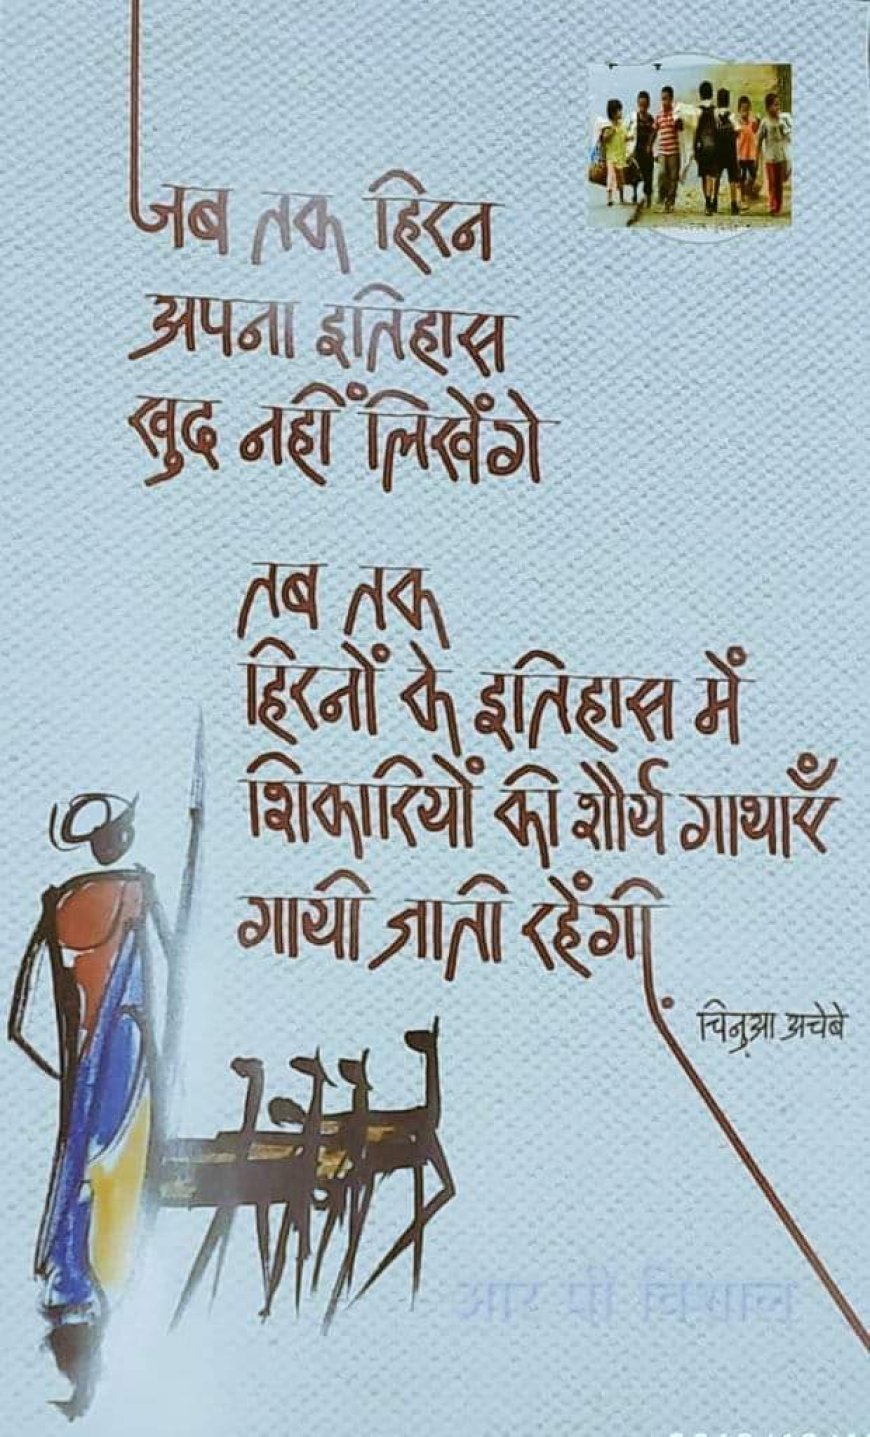 जब तक हिरन
अपना इतिहास
खुद नहीं लिखेंगे
तब तक
हिरनों के इतिहास में
शिकारियों की शौर्य गाथाएँ
गायी जाती रहेंगी
चिनुआ अचेबे